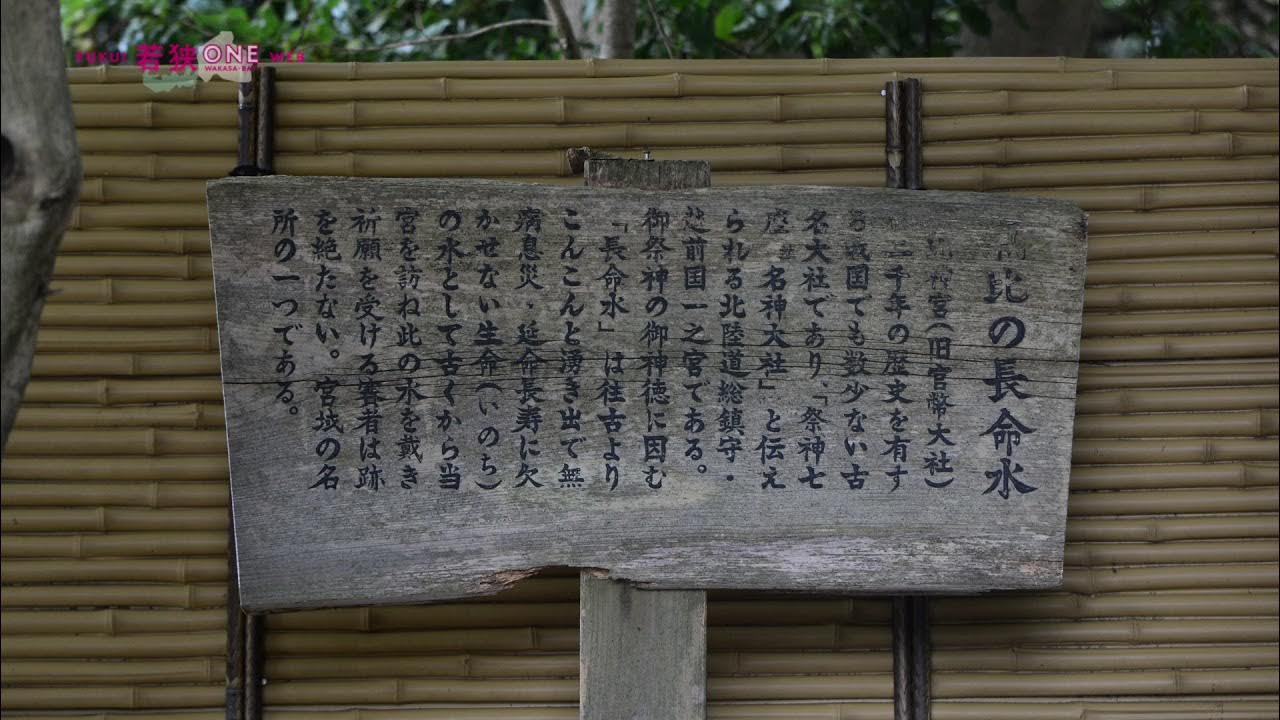 FUKUI 若狭 ONE WEB
WAKASA-BAY
毘の長命水
神宮(旧官幣大社)
二千年の歴史を有す
る我国でも数少ない古
名大社であり、「祭神七
座 名神大社」と伝え
られる北陸道総鎮守・
越前国一之宮である。
御祭神の御神徳に因む
「長命水」は往古より
こんこんと湧き出で無
病息災・延命長寿に欠
かせない生命(いのち)
の水として古くから当
宮を訪ね此の水を戴き
祈願を受ける審者は跡
を絶たない。宮域の名
所の一つである。